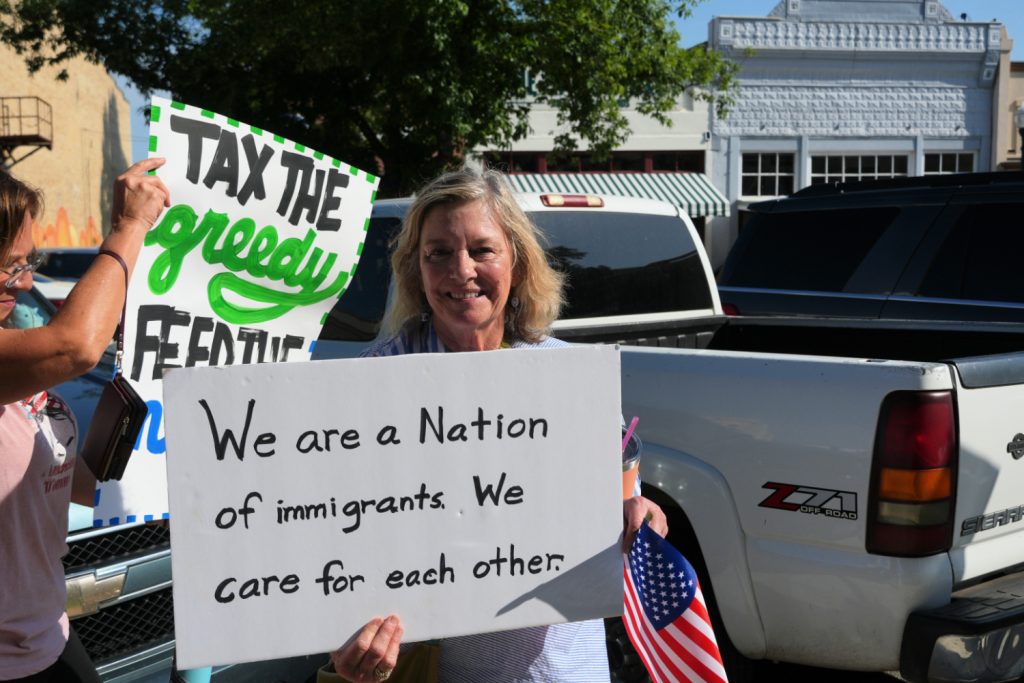 TAX THE
greedy
FEED THE
We are a Nation
of immigrants. We
care for each other.
Z71
OFF ROAD
SIERRA